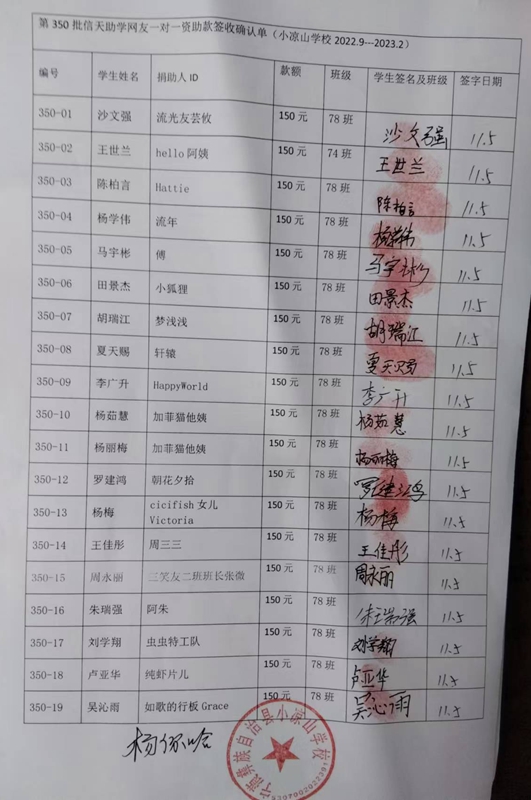 第 350 批信天助学网友一对一资助款签收确认单（小凉山学校 2022.9---2023.2）
编号 学生姓名 捐助人 ID 款额 班级 学生签名及班级 签字日期
350-01 沙文强 流光友芸攸 150 元 78 班 沙文强 11.5
350-02 王世兰 hello 阿姨 150 元 74 班 王世兰 11.5
350-03 陈柏言 Hattie 150 元 78 班 陈柏言 11.5
350-04 杨学伟 流年 150 元 78 班 杨学伟 11.5
350-05 马宇彬 傅 150 元 78 班 马宇彬 11.5
350-06 田景杰 小狐狸 150 元 78 班 田景杰 11.5
350-07 胡瑞江 梦浅浅 150 元 78 班 胡瑞江 11.5
350-08 夏天赐 轩辕 150 元 78 班 夏天赐 11.5
350-09 李广升 HappyWorld 150 元 78 班 李广升 11.5
350-10 杨茹慧 加菲猫他姨 150 元 78 班 杨茹慧 11.5
350-11 杨丽梅 加菲猫他姨 150 元 78 班 杨丽梅 11.5
350-12 罗建鸿 朝花夕拾 150 元 78 班 罗建鸿 11.5
350-13 杨梅 cicifish 女儿 150 元 78 班 杨梅 11.5
Victoria
350-14 王佳彤 周三三 150 元 78 班 王佳彤 11.5
350-15 周永丽 三笑友二班班长张微 150 元 78 班 周永丽 11.5
350-16 朱瑞强 阿朱 150 元 78 班 朱瑞强 11.5
350-17 刘学翔 虫虫特工队 150 元 78 班 刘学翔 11.5
350-18 卢亚华 纯虾片儿 150 元 78 班 卢亚华 11.5
350-19 吴沁雨 如歌的行板 Grace 150 元 78 班 吴沁雨 11.5
宁蒗彝族自治县小凉山学校